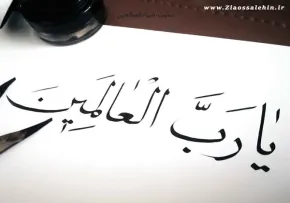 www.Ziaossalehin.ir
یا رَبَّ الْعالَمِینَ